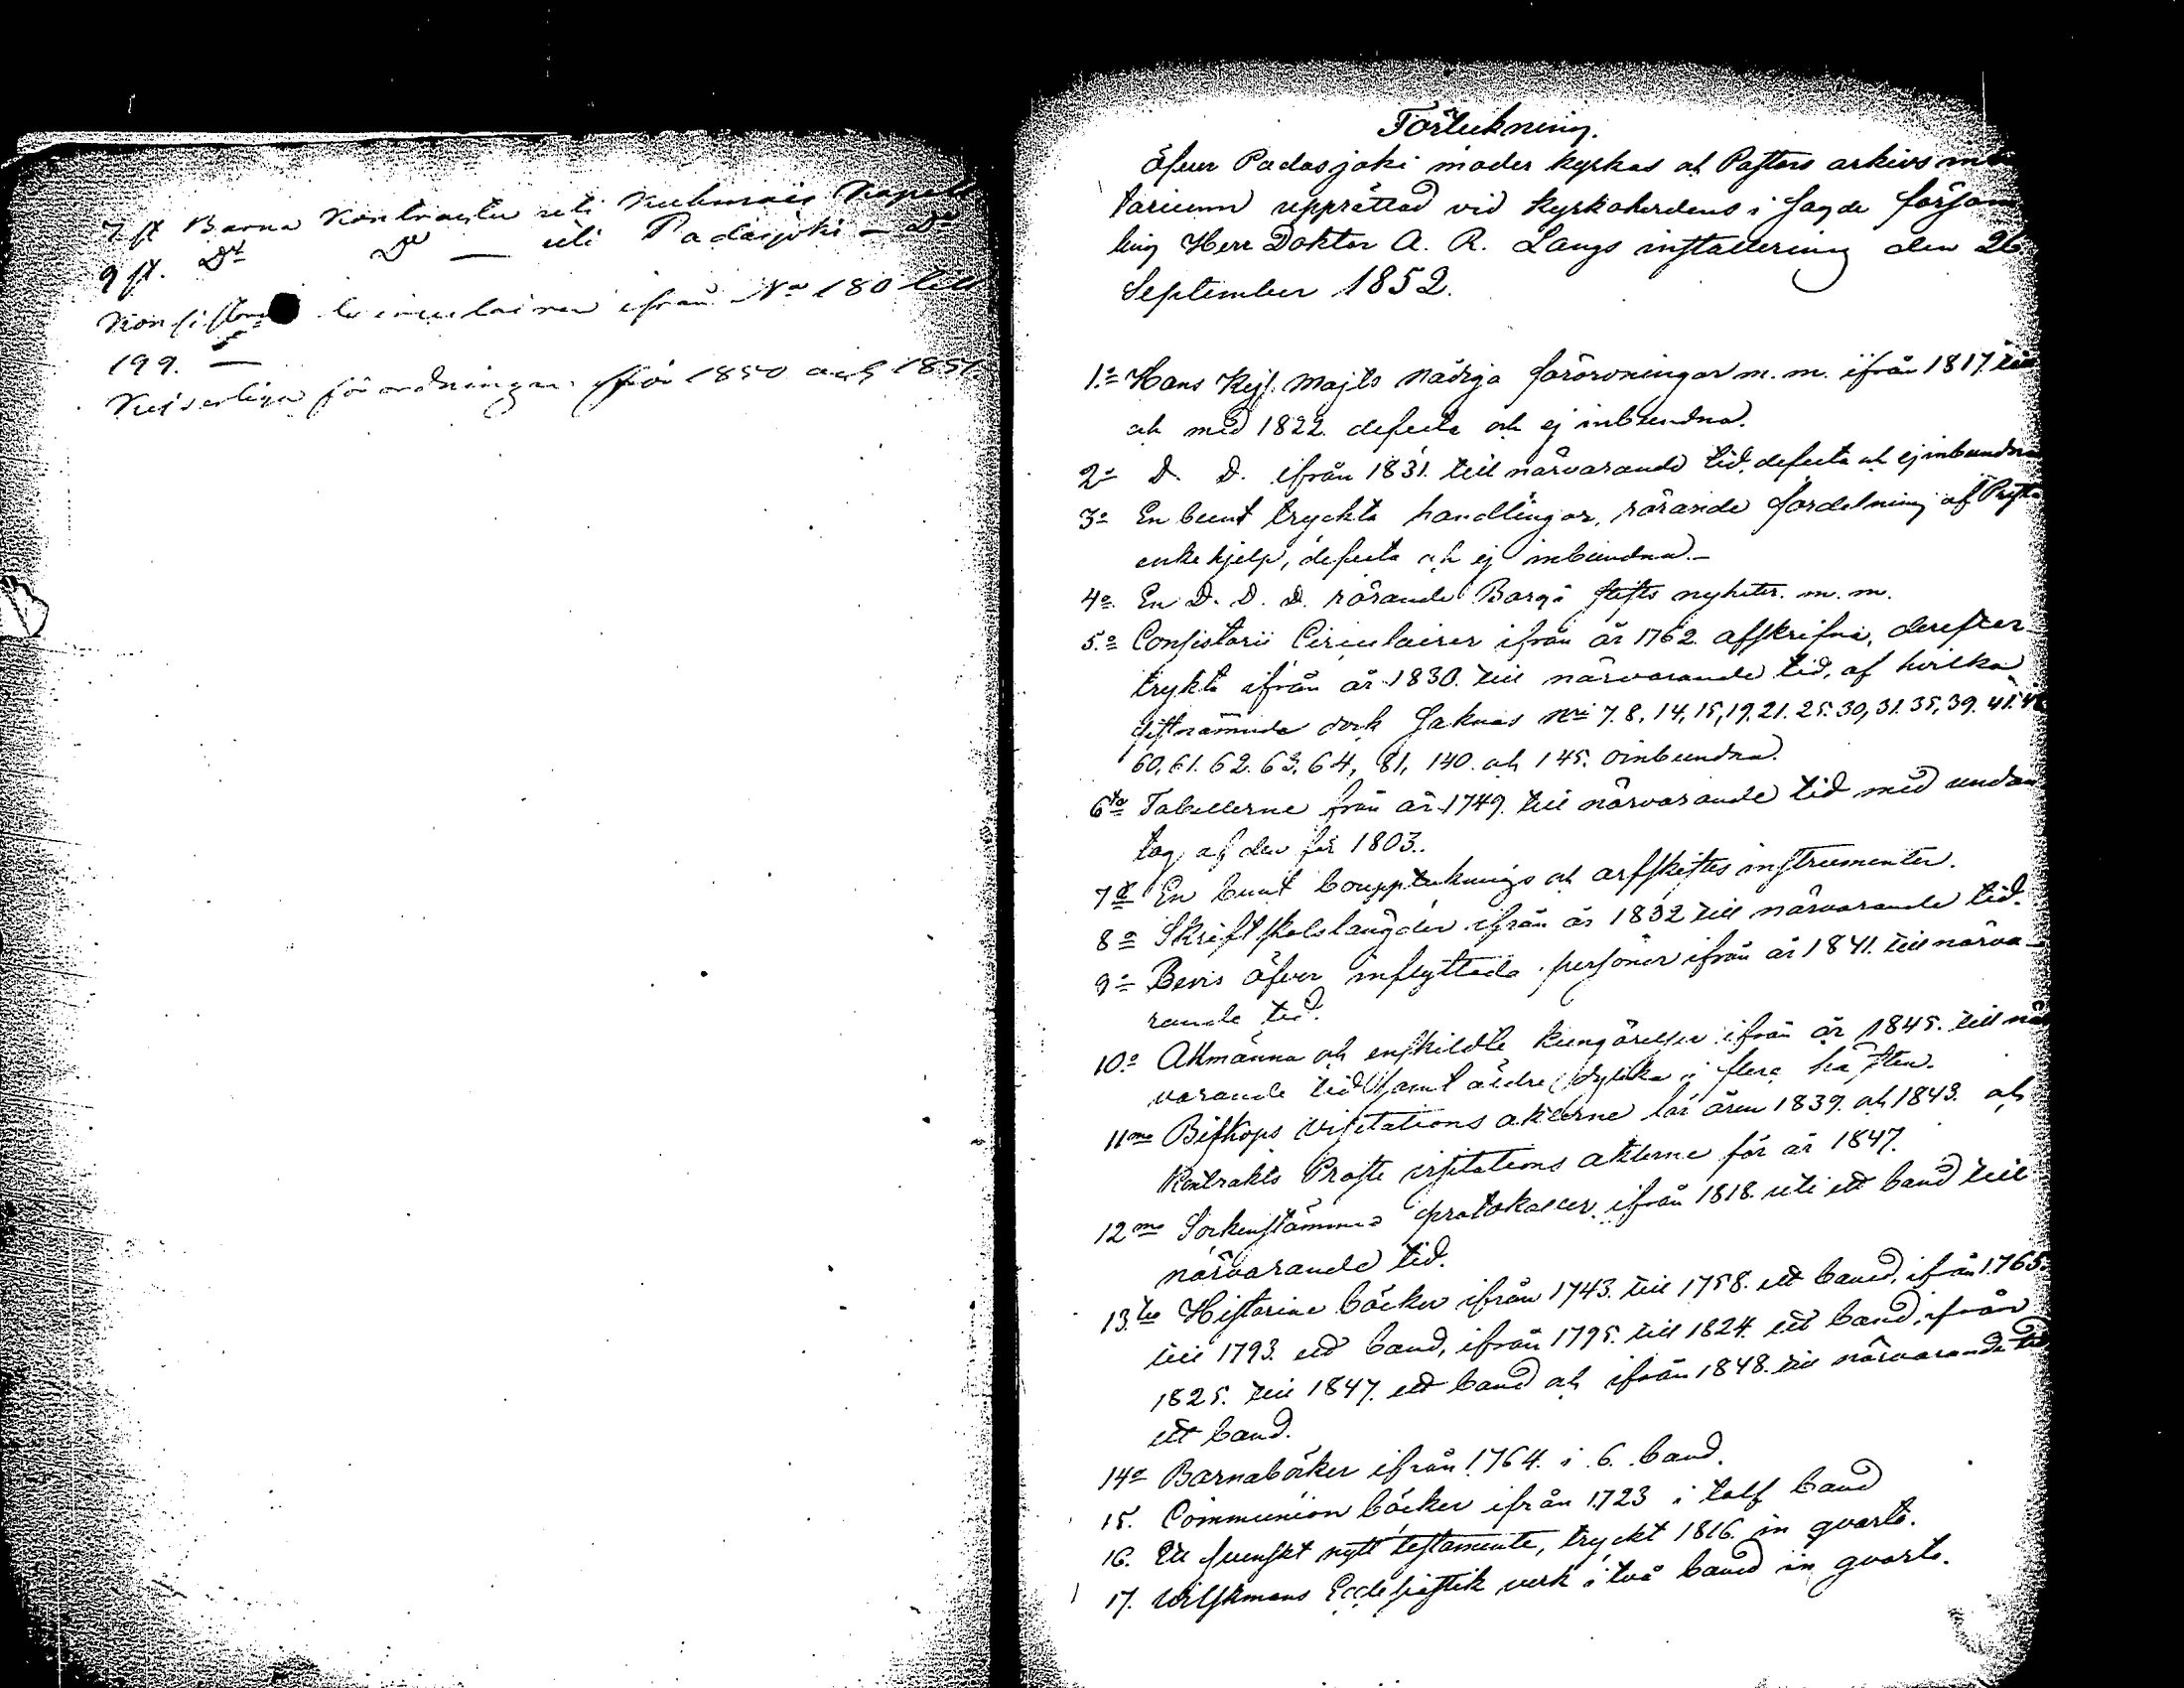 7 st Barna Kontracter uti Kuhmois Kapell
9 st. Do Do — uti Padasjoki — Do
Konsistorii Circulairer ifrån No 180 till
199. —
Keiserliga förordningar ifrån 1850 och 1851.
Förtekning.
Öfver Padasjoki moder kyrkas och Pastors arkivs
tarium upprättad vid Kyrkoherdens i sagde försam
ling Herr Doktor A. R. Langs installering den 26
September 1852.
1.o Hans Kejs. Majts Nådiga förordningar m. m. ifrån 1817. till
och med 1822. defecta och ej inbundna.
2o D. D. ifrån 1831. till närvarande tid, defecta och ej inbundna
3o En bunt tryckta handlingar, rörande fördelning af
enkehjelp, defecta och ej inbundna. —
4o. En D. D. D. rörande Borgå stifts nyheter. m. m.
5.o Consistorii Circulairer ifrån år 1762. afskrifne, derefter
trykta ifrån år 1830. till närvarande tid, af hvilka
sistnämnda dock saknas Nri 7. 8, 14, 15, 19. 21. 25. 30, 31. 35, 39. 41.
60, 61. 62. 63. 64, 81, 140. och 145. oinbundna.
6to Tabellerne från år 1749. till närvarande tid med undan
tag af den för 1803.
7o En bunt bouppteknings och arfskiftes instrumenter.
8o Skriftskolslängder ifrån år 1832 till närvarande tid.
9o Bevis öfver inflyttade personer ifrån år 1841. till närva-
rande tid.
10.o Allmänna och enskildte kungörelser ifrån år 1845. till när
varande tid samt äldre dylika i flera häften.
11mo Biskops Visitations akterne för åren 1839. och 1843. och
Kontrakts Prosts visitations akterne för år 1847.
12mo Sockenstämmo protokoller ifrån 1818. uti ett band till
närvarande tid.
13.tio Historiae böcker ifrån 1743. till 1758. ett band, ifrån 1765.
till 1793. ett band, ifrån 1795. till 1824. ett band, ifrån
1825. till 1847. ett band och ifrån 1848. till närvarande tid
ett band.
14o Barnaböcker ifrån 1764. i 6. band.
15. Communion böcker ifrån 1723 i tolf band
16. Ett svenskt nytt testamente, tryckt 1816. in qvarto.
17. Wilskmans Ecclesiastik verk i två band in qvarto.